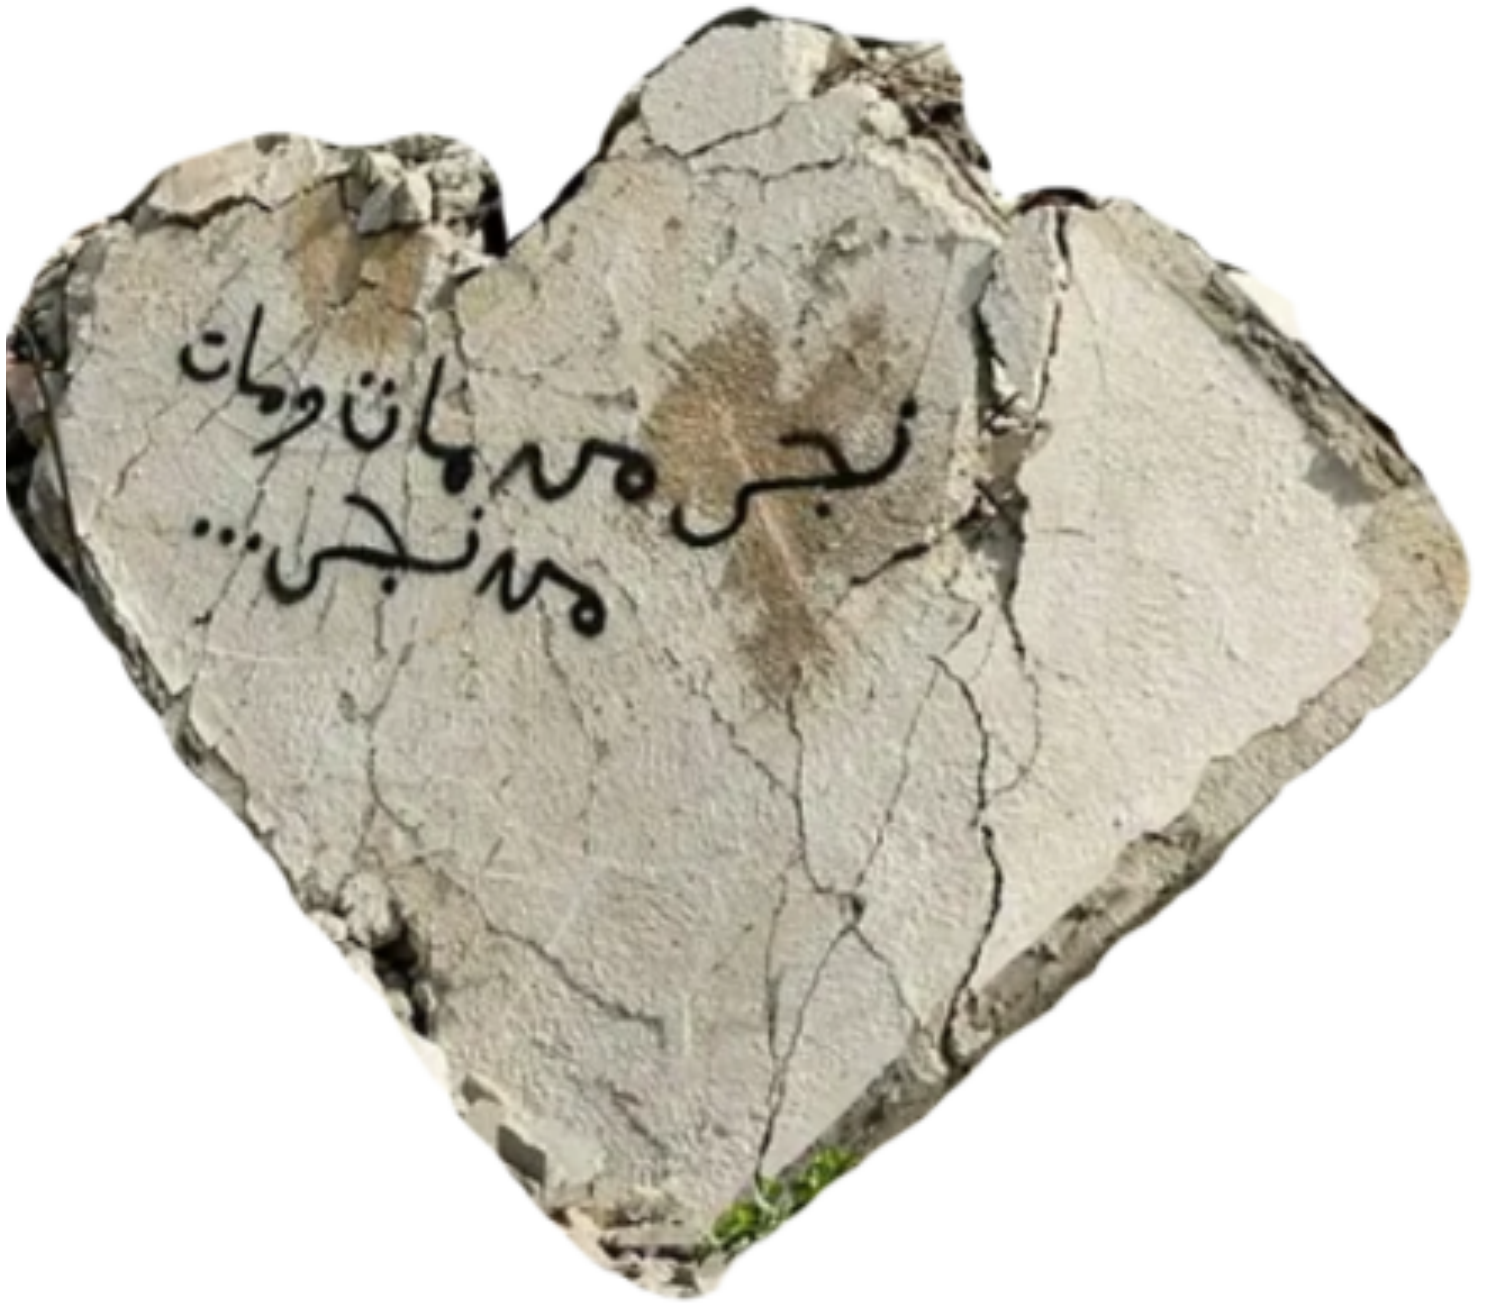 نجى من مات ومات
من نجى...